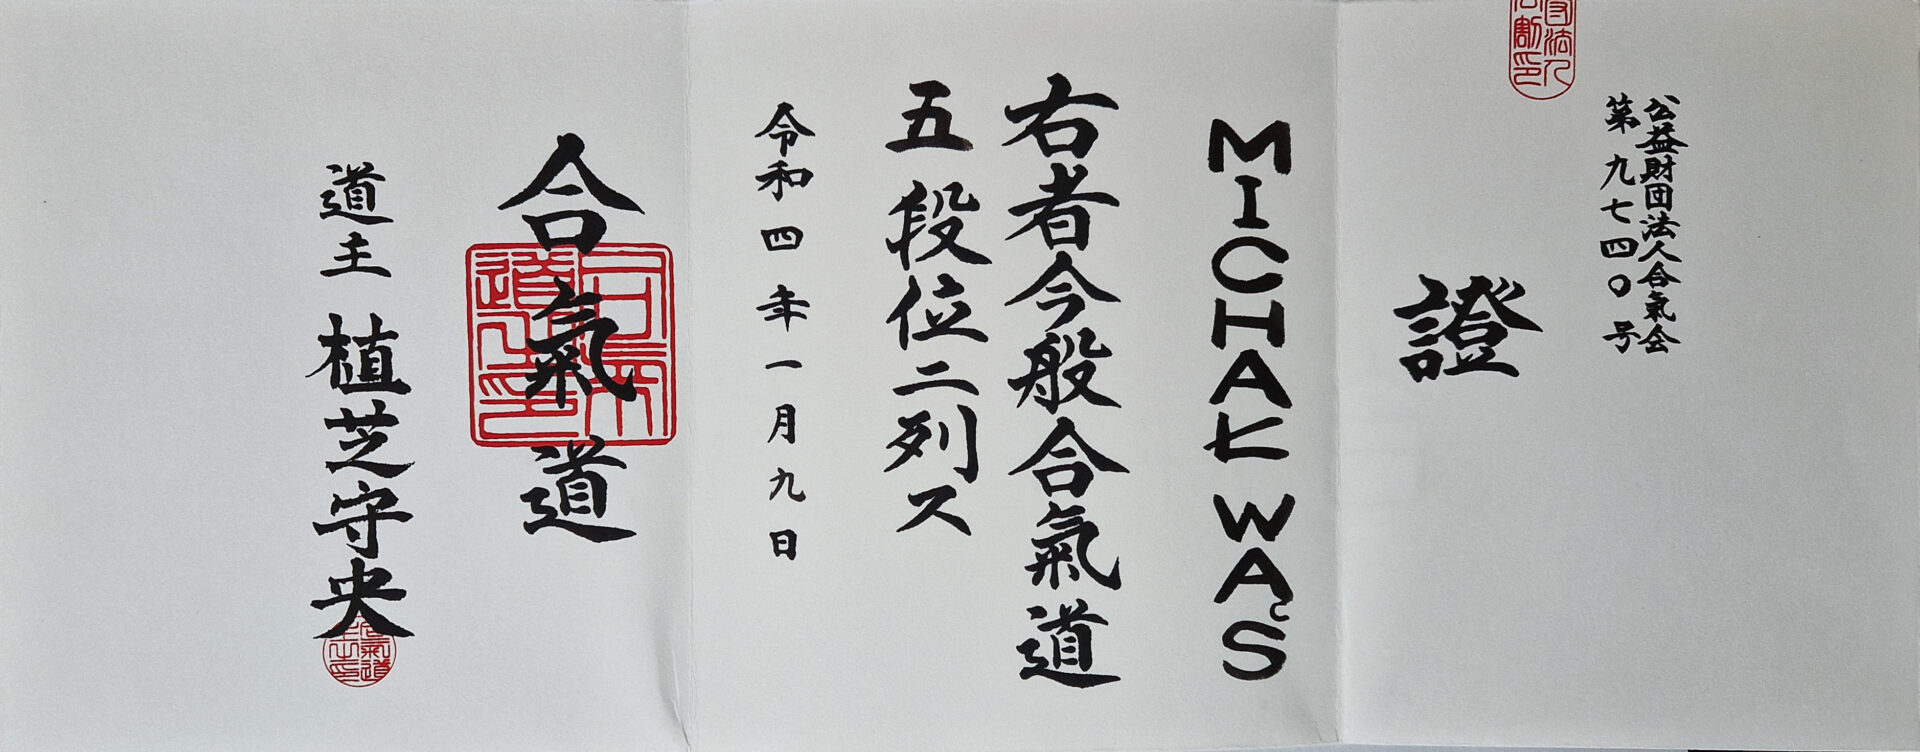 公益財団法人合氣会
第九七四〇号
證
MICHAŁ WĄS
右者今般合氣道
五段位ニ列ス
令和四年一月九日
合氣道
道主 植芝守央